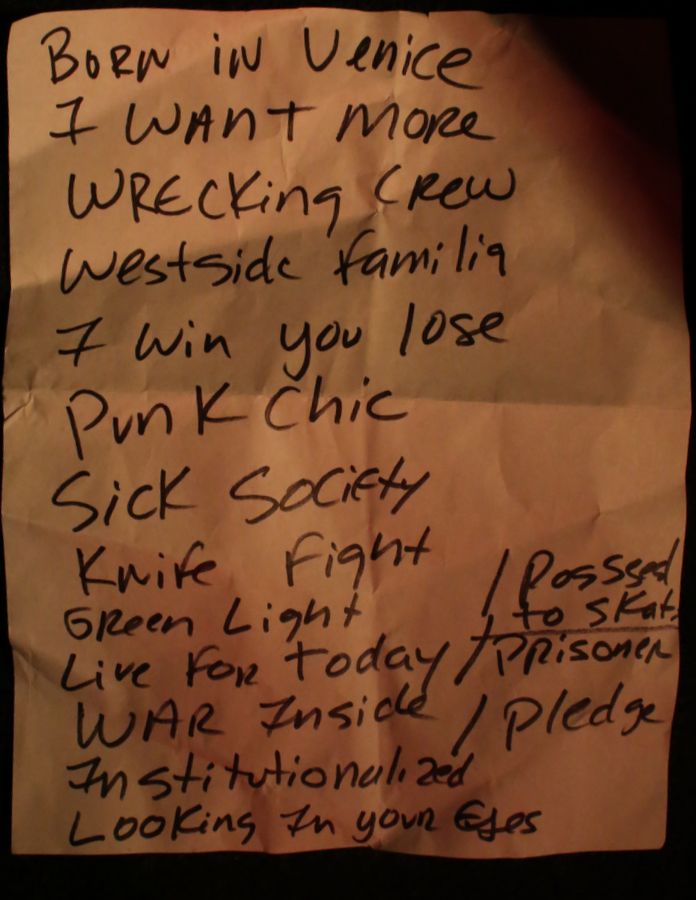 Born in Venice
I WANT more
WRECKing CREW
Westside familia
I Win you lose
Punk Chic
Sick Society
Knife Fight
/ Posssed
Green Light
to skate
Live For today / Prisoner
WAR Inside / Pledge
Institutionalized
Looking In your Eyes